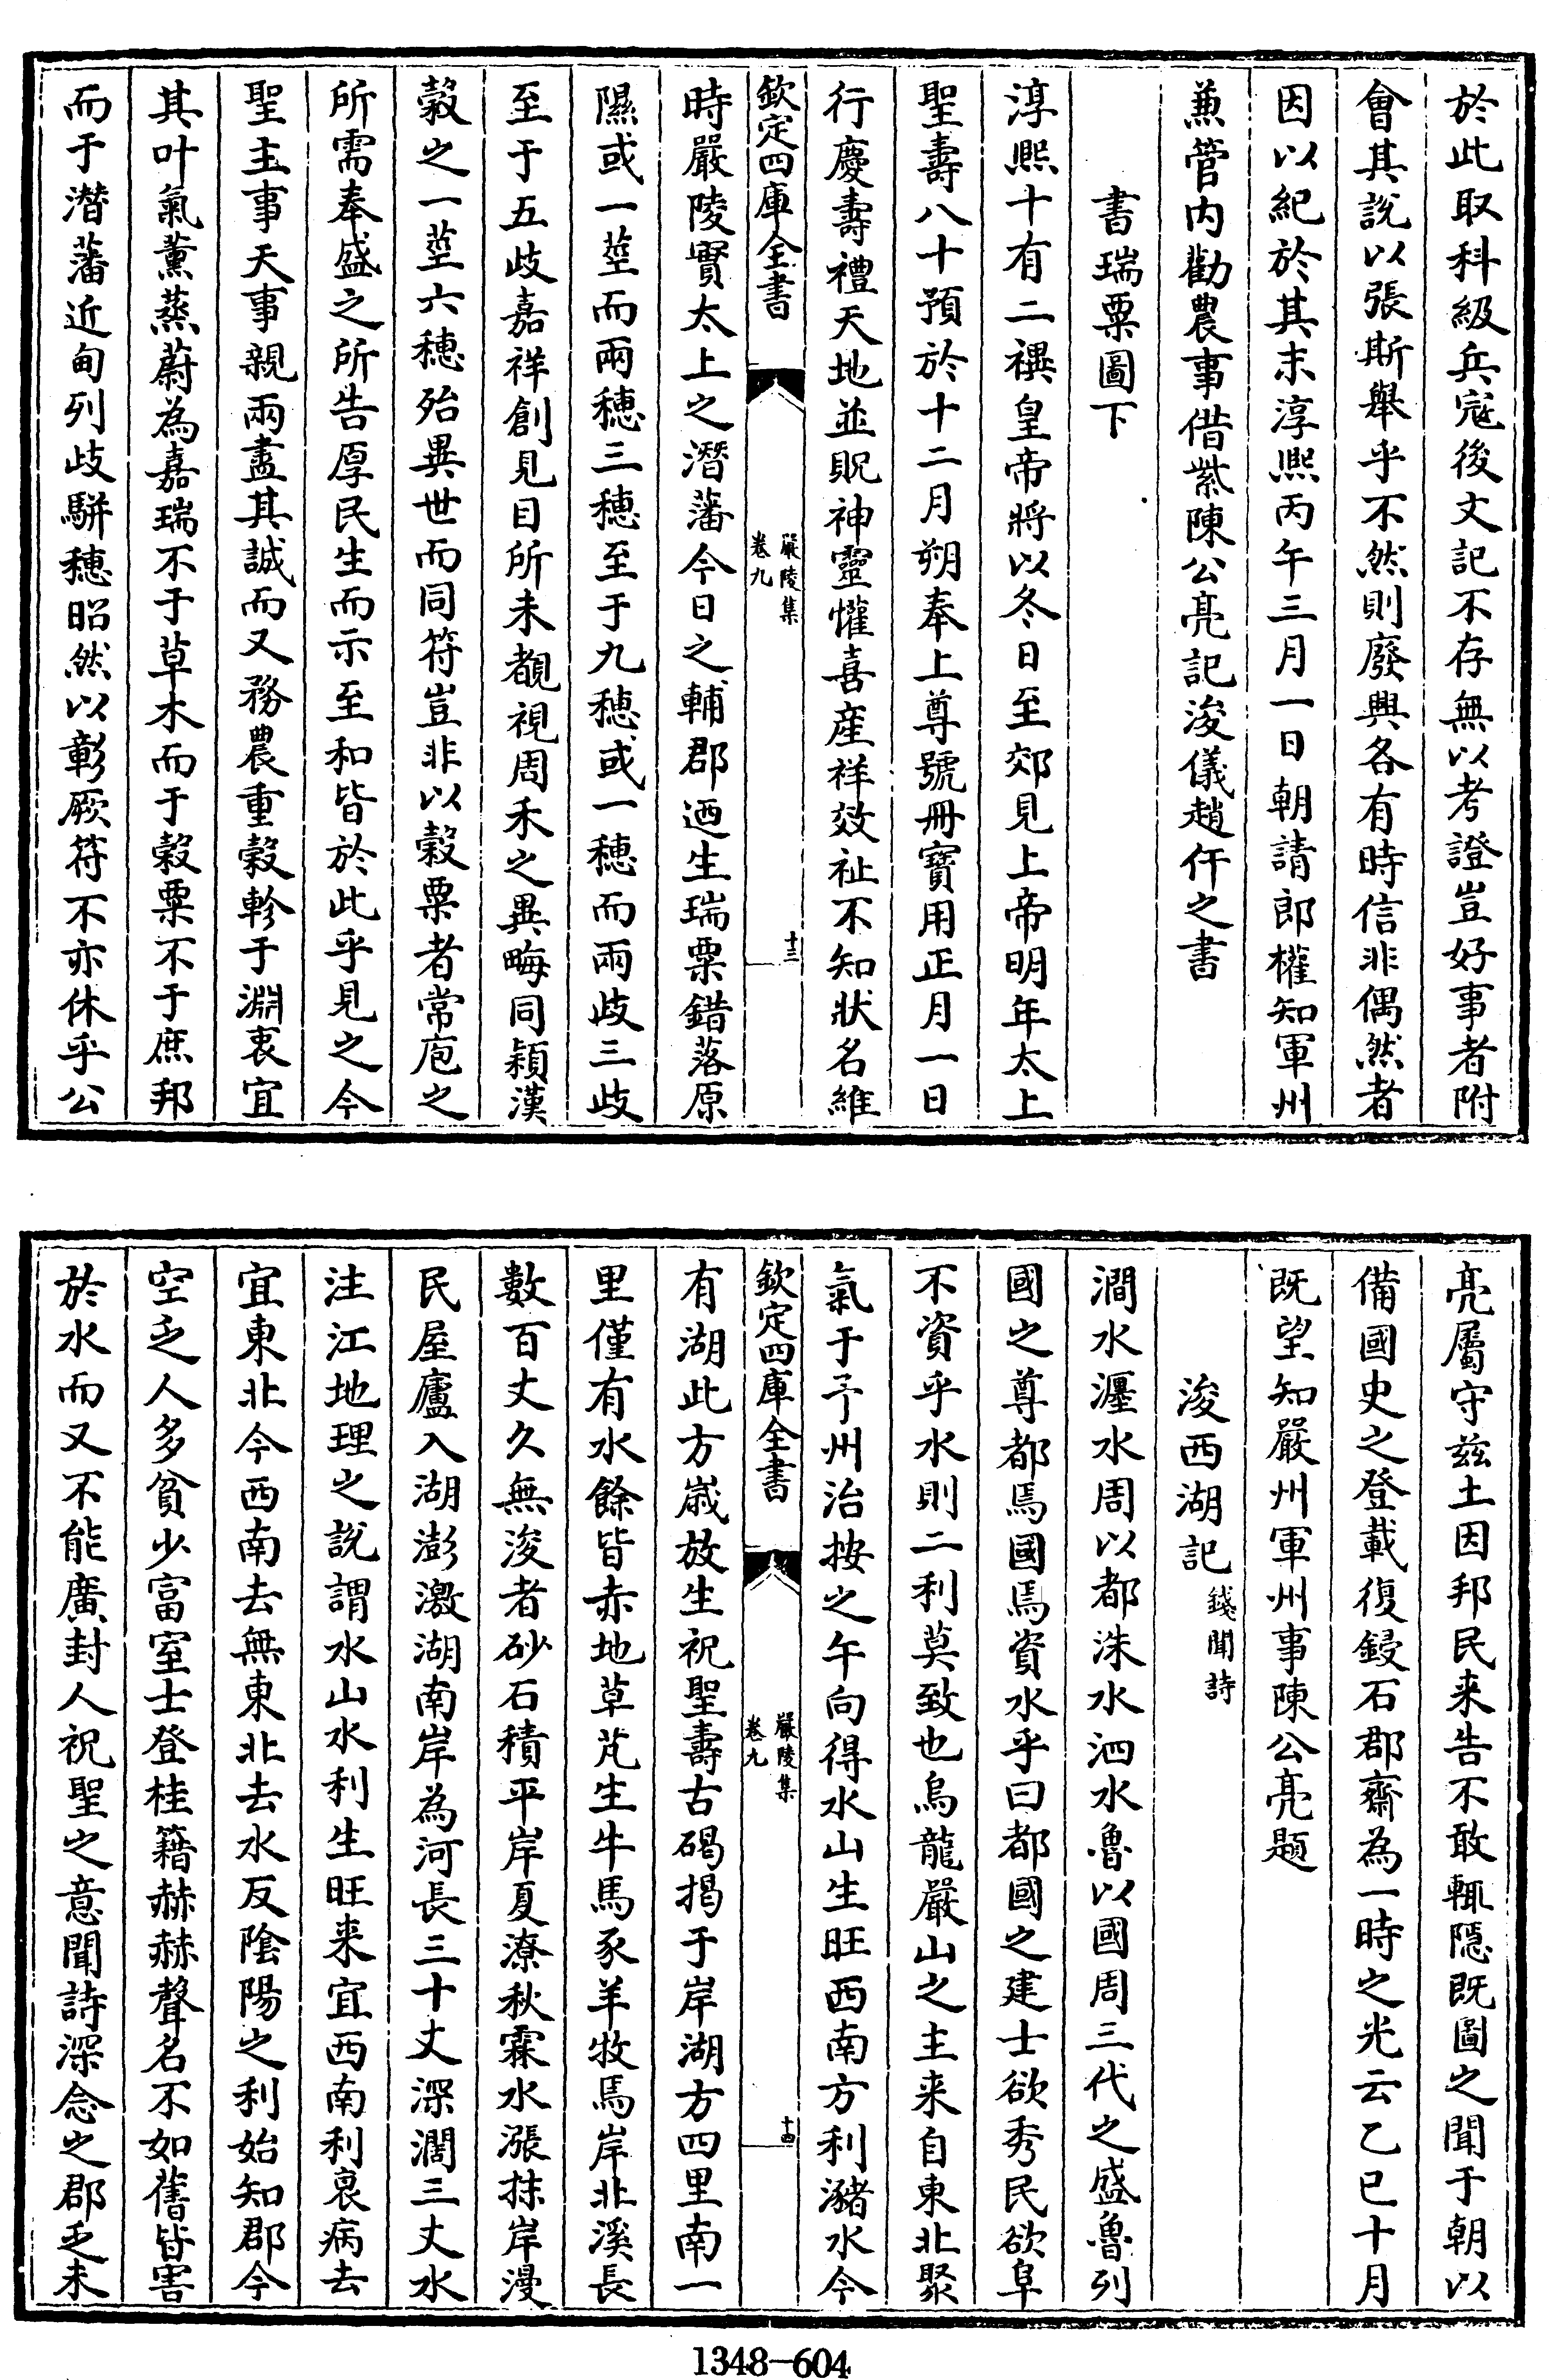 於此取科級兵寇後文記不存無以考證豈好事者附
會其説以張斯舉乎不然則廢興各有時信非偶然者
因以紀於其末淳熙丙午三月一日朝請郎權知軍州
兼管内勸農事借紫陳公亮記浚儀趙仟之書
書瑞粟圖下
淳熙十有二禩皇帝將以冬日至郊見上帝明年太上
聖壽八十預於十二月朔奉上尊號冊寳用正月一日
行慶壽禮天地並貺神靈懽喜産祥效祉不知狀名維
欽定四庫全書
嚴陵集
卷九
十三
時嚴陵實太上之潛藩今日之輔郡迺生瑞粟錯落原
隰或一莖而兩穗三穗至于九穗或一穗而兩歧三歧
至于五歧嘉祥創見目所未覩視周禾之異畮同穎漢
穀之一莖六穗殆異世而同符豈非以穀粟者常庖之
所需奉盛之所告厚民生而示至和皆於此乎見之今
聖主事天事親兩盡其誠而又務農重穀軫于淵衷宜
其叶氣薰蒸蔚為嘉瑞不于草木而于穀粟不于庶邦
而于潛藩近甸列歧駢穗昭然以彰厥符不亦休乎公
亮屬守兹土因邦民来告不敢輒隱既圖之聞于朝以
備國史之登載復鋟石郡齋為一時之光云乙巳十月
既望知嚴州軍州事陳公亮題
浚西湖記 錢聞詩
澗水瀍水周以都洙水泗水魯以國周三代之盛魯列
國之尊都焉國焉資水乎曰都國之建士欲秀民欲阜
不資乎水則二利莫致也烏龍嚴山之主来自東北聚
氣于予州治按之午向得水山生旺西南方利瀦水今
欽定四庫全書
嚴陵集
卷九
十四
有湖此方嵗放生祝聖壽古碣揭于岸湖方四里南一
里僅有水餘皆赤地草芃生牛馬豕羊牧馬岸北溪長
數百丈久無浚者砂石積平岸夏潦秋霖水漲抹岸漫
民屋廬入湖澎激湖南岸為河長三十丈深濶三丈水
注江地理之説謂水山水利生旺来宜西南利衰病去
宜東北今西南去無東北去水反陰陽之利始知郡今
空乏人多貧少富室士登桂籍赫赫聲名不如舊皆害
於水而又不能廣封人祝聖之意聞詩深念之郡乏未
1348-604